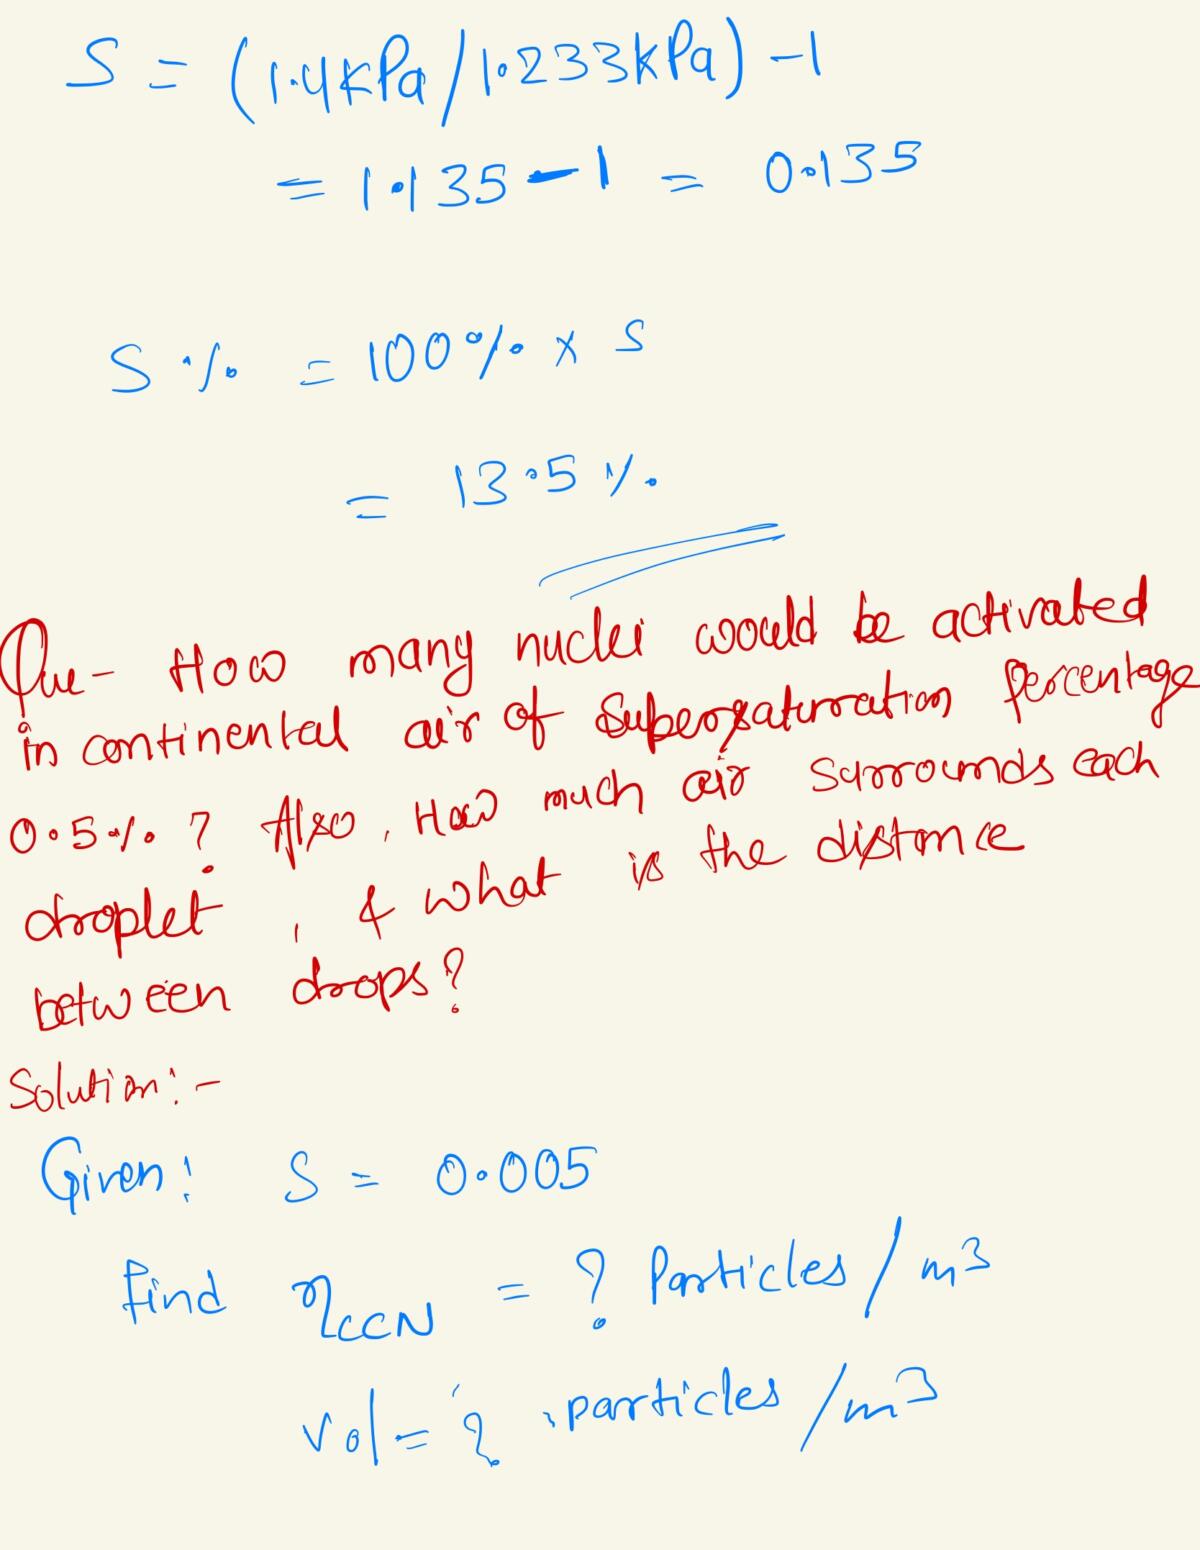 S = (1.4kPa/1.233kPa) -1
= 1.135 - 1 = 0.135
S % = 100% x S
= 13.5 %.
Que- How many nuclei would be activated
in continental air of Supersaturation percentage
0.5% ? Also, How much air surrounds each
droplet, & what is the distance
between drops?
Solution:-
Given: S = 0.005
find ηCCN = ? Particles/m³
vol = ? particles/m³